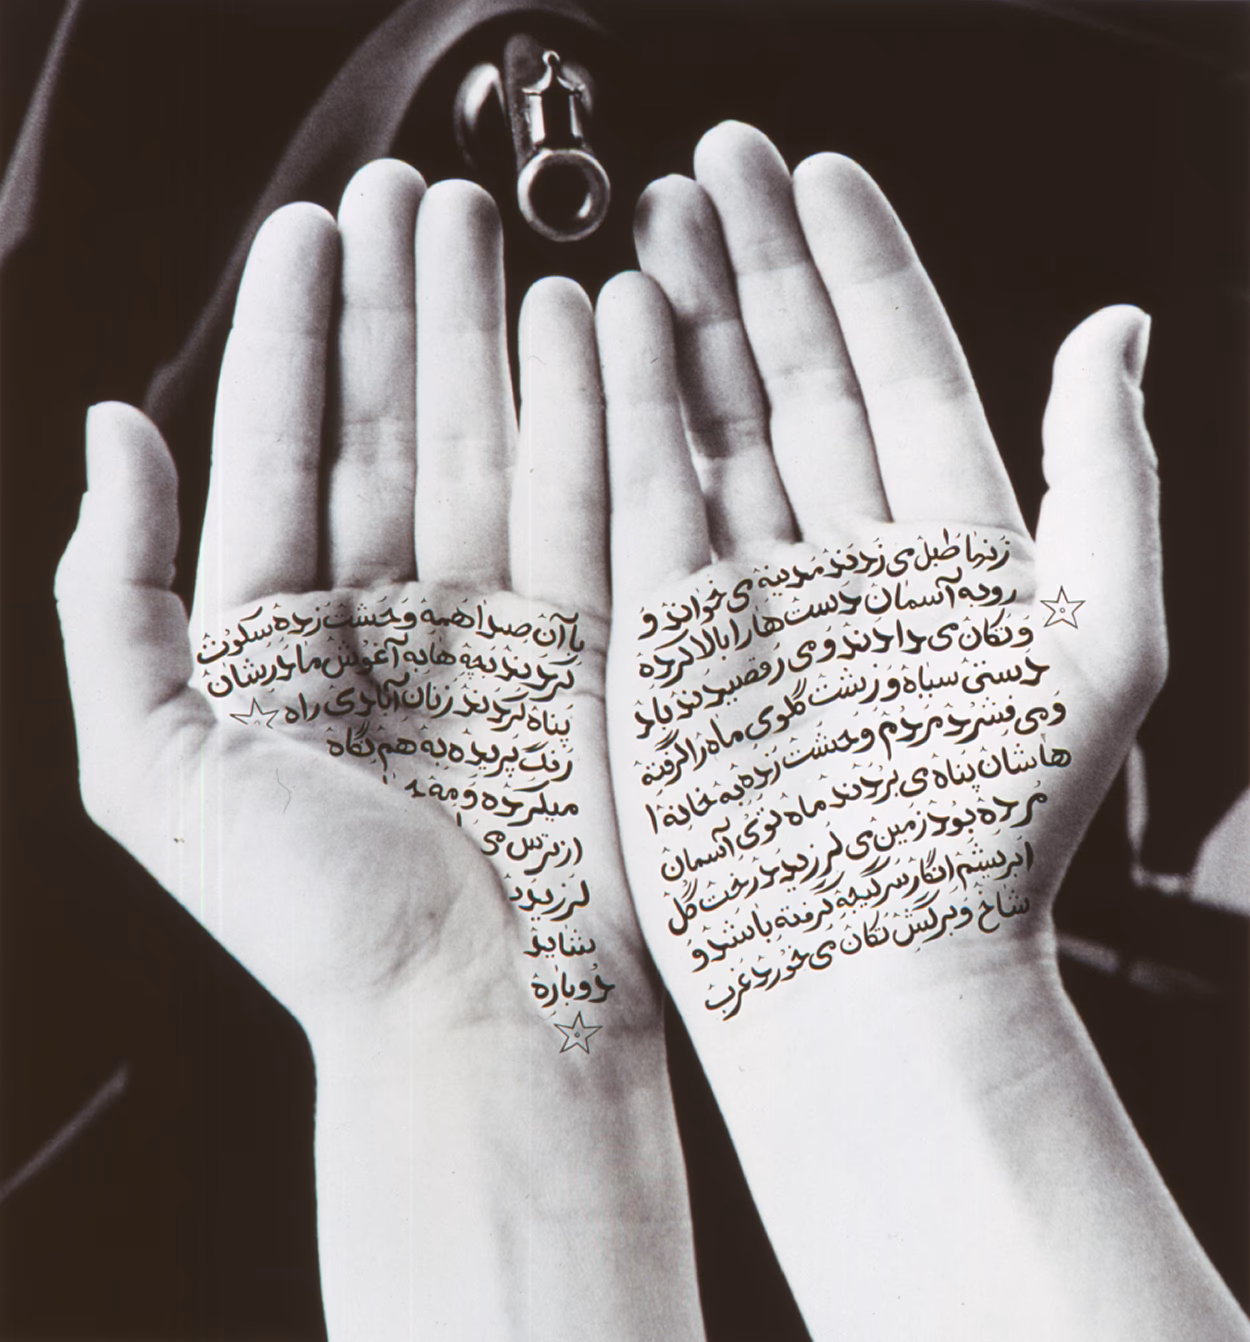 زنها طبل می زدند مدینه می خواند و
رو به آسمان دست ها را بالا کرده
و تکان می دادند و می رقصیدند باد
دستی سیاه و زشت گلوی ماه را گرفته
و می فشرد مردم وحشت زده به خانه
هاشان پناه می بردند ماه توی آسمان
مرده بود زمین می لرزید درخت گل
ابریشم انگار سرگیجه گرفته باشد و
شاخ و برگش تکان می خورد
با آن صدا همه وحشت زده سکوت
کردند بچه ها به آغوش مادرشان
پناه کردند زنان آبادی راه
رنگ پریده به هم نگاه
میکرده و
از ترس می
لرزید
شاید
دوباره